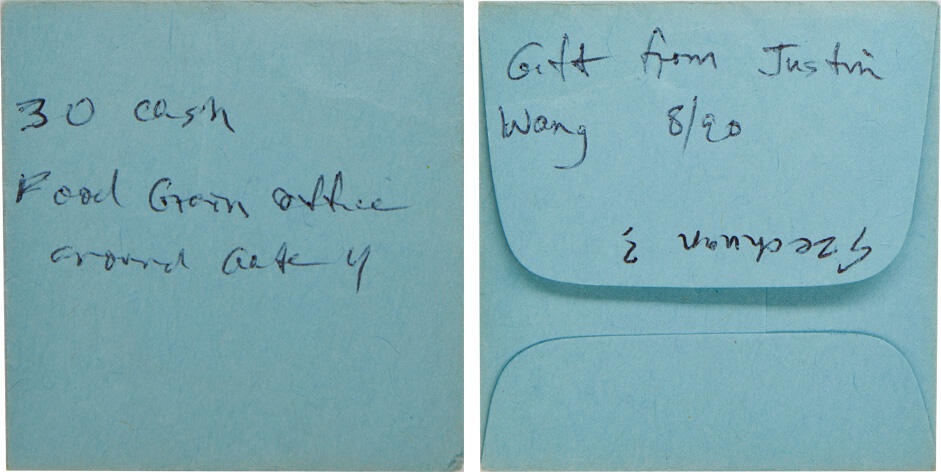 30 cash
Food Grain office
around
Gift from Justin
Wang 8/90
Szechuan ?